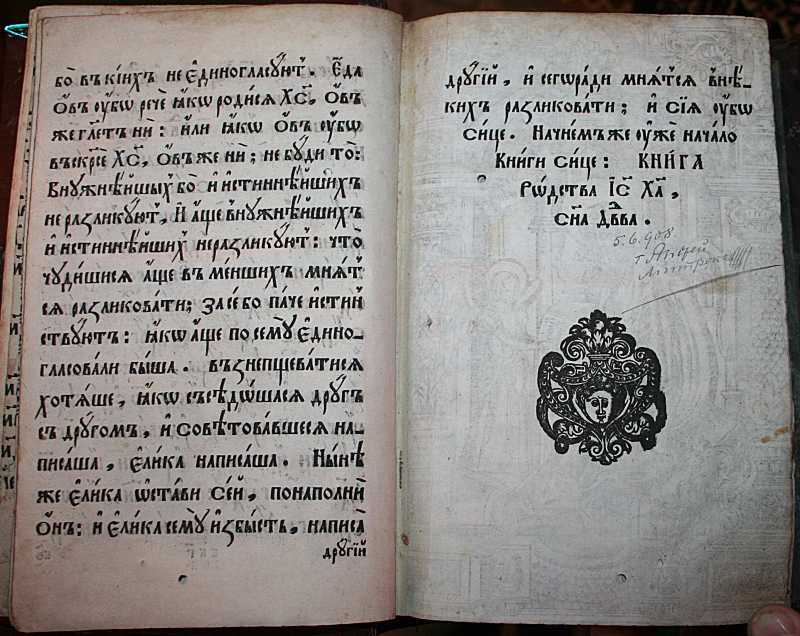 бо̀ въ кі́ихъ не є҆диногласꙋ́ютъ. Є҆да̀
ѻ҆́въ ᲂу҆́бѡ речѐ ꙗ҆́кѡ роди́сѧ Хс҃, ѻ҆́въ
же гл҃етъ ни̑: и҆лѝ ꙗ҆́кѡ ѻ҆́въ ᲂу҆́бѡ
въскр҃се Хс҃, ѻ҆́въ же ни̑; не бꙋ́ди то̀:
Внꙋжнѣ́йшыхъ бо̀ и҆ и҆́стиннѣйшихъ
не разликꙋ́ютъ, И҆ а҆́ще внꙋжнѣ́йшихъ
и҆ и҆́стиннѣйшихъ неразликꙋ́ютъ: что̀
чꙋди́шисѧ а҆́ще в ме́ншихъ мнѧ́т
сѧ разликова́ти; За се́ бо па́че и҆́стин
ствꙋютъ: ꙗ҆́кѡ а҆́ще по семꙋ̀ є҆дино-
гласовали бы́ша. възнепщева́тисѧ
хотѧ́ше, ꙗ҆́кѡ съсѣдѡ́шасѧ дрꙋ́гъ
съ дрꙋ́гомъ, и҆ совѣ́товавшесѧ на-
писа́ша, є҆ли́ка написа́ша. Ны́нѣ
же є҆ли́ка ѡ҆ста́ви се́й, понапо́лни
ѻ҆́нъ: и҆ є҆ли́ка семꙋ̀ и҆збы́сть, написа̀
дрꙋгі́й
дрꙋгі́й, и҆ сегѡ̀ра́ди мнѧ́тсѧ внѣ́-
кихъ разликова́ти; и҆ сїѧ̑ ᲂу҆́бѡ
си́це. На́чнемъ же ᲂу҆жѐ нача́ло
Кни́ги си́це: КНИ́ГА
Рѡ́дства І҆с҃ Ха҃,
сн҃а Дв҃два.
5.6.908
г. Андрей